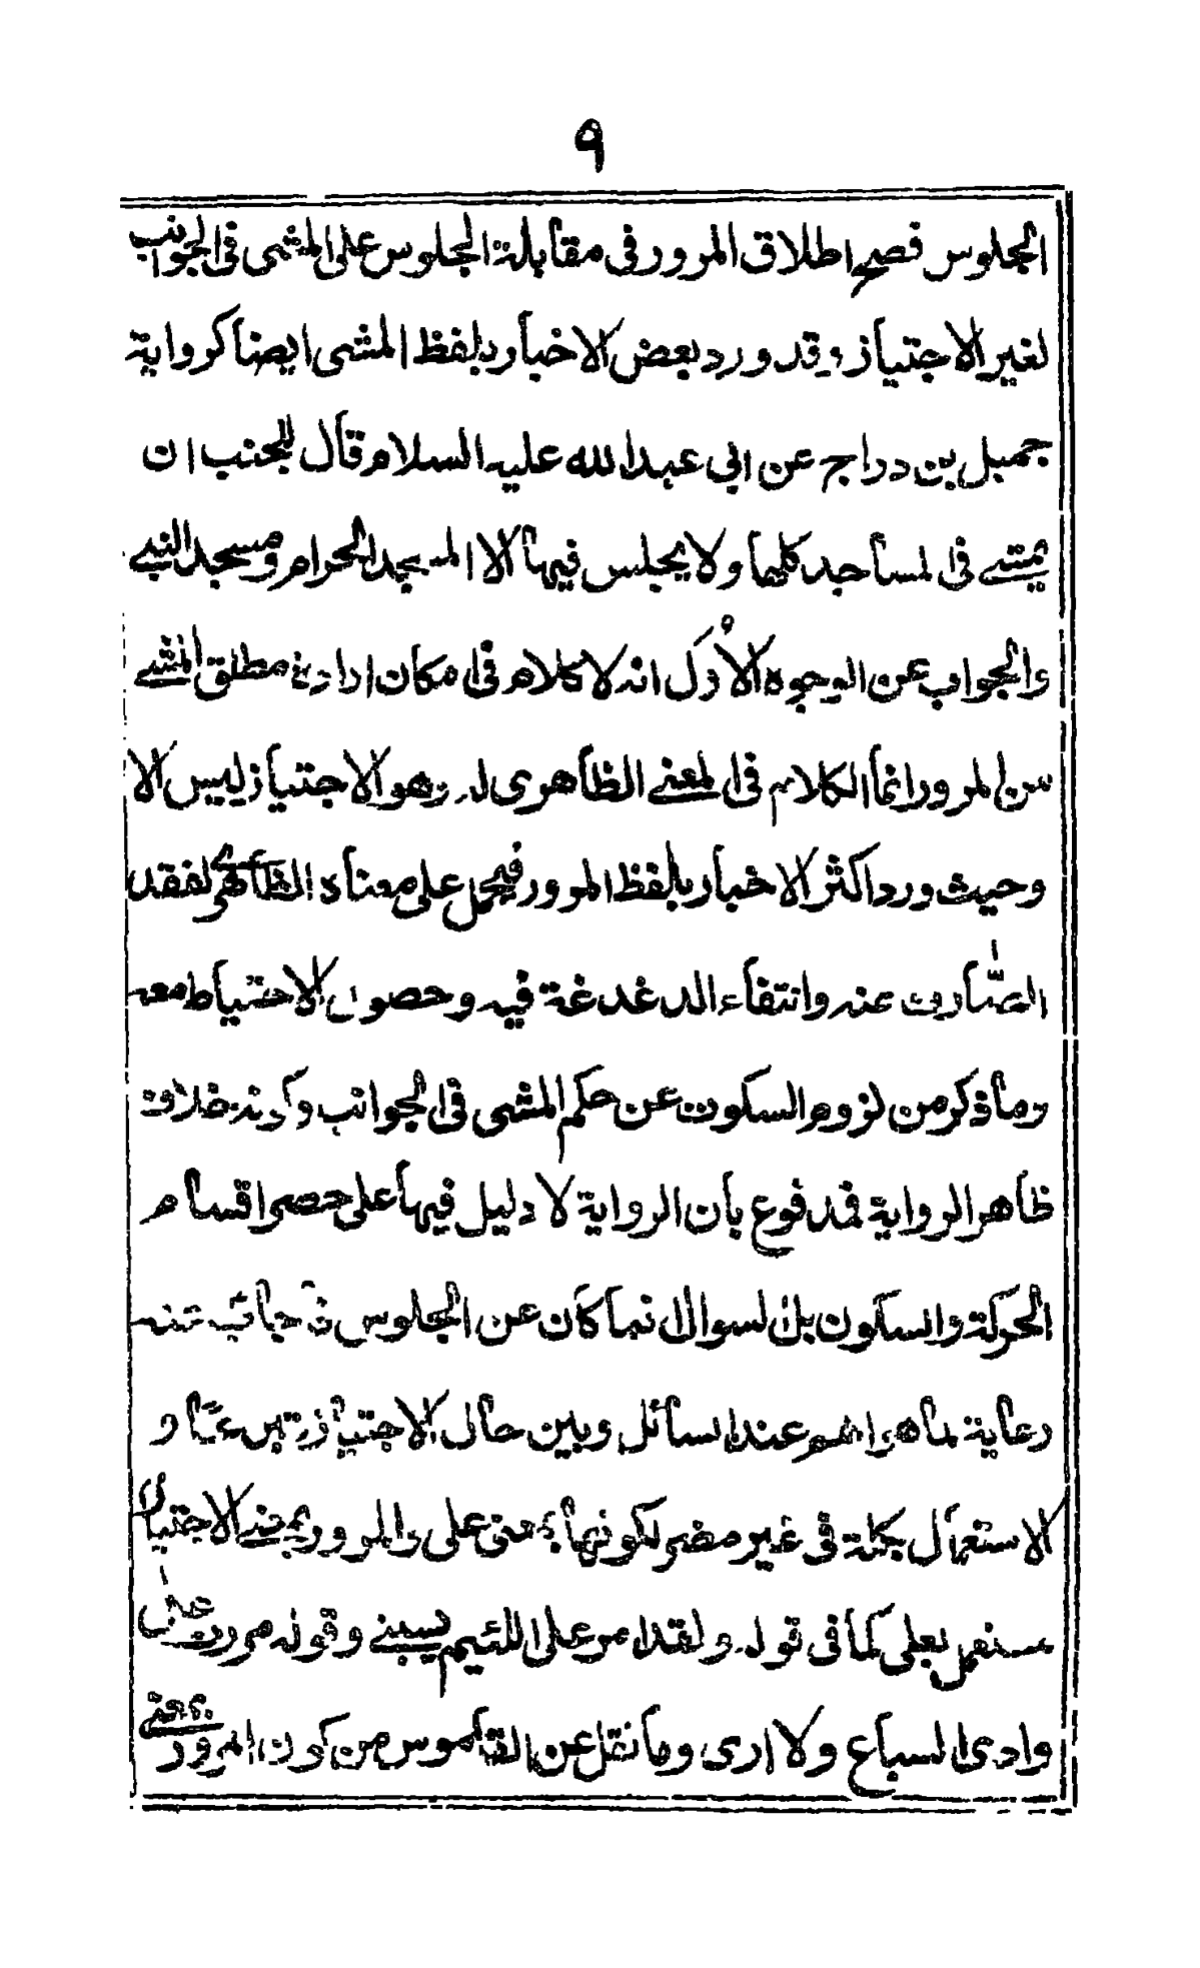 ٩
الجلوس فصح اطلاق المرور فى مقابلة الجلوس على المشى فى الجوانب
لغير الاجتياز وقد ورد بعض الاخبار بلفظ المشى ايضا كرواية
جميل بن دراج عن ابى عبد الله عليه السلام قال للجنب ان
يمشے فى المساجد كلها ولا يجلس فيها الا المسجد الحرام ومسجد النبے
والجواب عن الوجوه الأول انه لا كلام فى امكان ارادة مطلق المشے
من المرور انما الكلام فى المعنے الظاهرى له وهو الاجتياز ليس الا
وحيث ورد اكثر الاخبار بلفظ المرور فيحمل على معناه الظاهرے لفقد
الصّارف عنه وانتفاء الدغدغة فيه وحصول الاحتياط معه
وما ذكر من لزوم السكوت عن حكم المشى فى الجوانب وكونه خلاف
ظاهر الرواية فمدفوع بان الرواية لا دليل فيها على حصر اقسام
الحركة والسكون بل السوال انما كان عن الجلوس
رعاية لما هو اهم عند السائل وبين حال الاجتياز
الاستعمال بكلة فى غير مضر لكونها بمعنى على والمرور بمعنے الاجتياز
يستعمل بعلى كما فى قوله ولقد امر على اللئيم يسبنے وقوله مررت على
وادى السباع ولا ارى وما نقل عن القاموس من كون المرور بمعنے